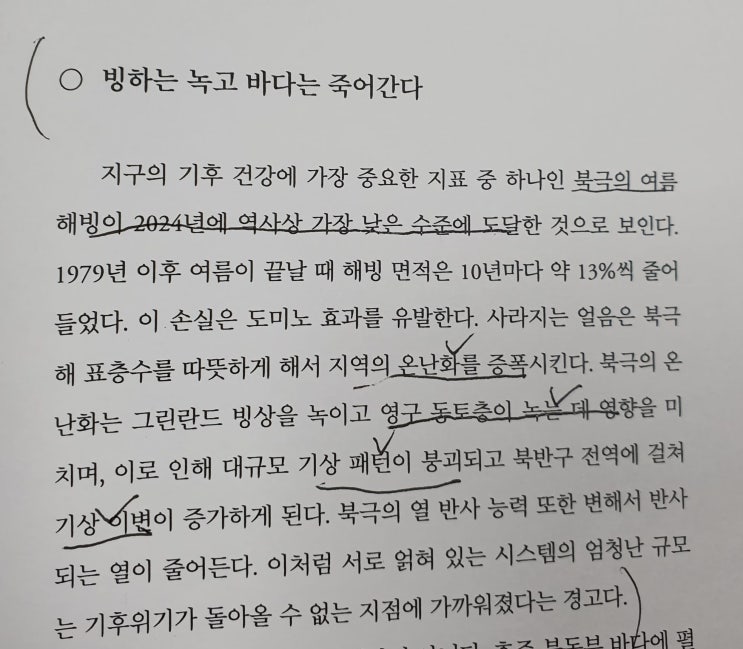 ○ 빙하는 녹고 바다는 죽어간다
지구의 기후 건강에 가장 중요한 지표 중 하나인 북극의 여름
해빙이 2024년에 역사상 가장 낮은 수준에 도달한 것으로 보인다.
1979년 이후 여름이 끝날 때 해빙 면적은 10년마다 약 13%씩 줄어
들었다. 이 손실은 도미노 효과를 유발한다. 사라지는 얼음은 북극
해 표층수를 따뜻하게 해서 지역의 온난화를 증폭시킨다. 북극의 온
난화는 그린란드 빙상을 녹이고 영구 동토층이 녹는 데 영향을 미
치며, 이로 인해 대규모 기상 패턴이 붕괴되고 북반구 전역에 걸쳐
기상 이변이 증가하게 된다. 북극의 열 반사 능력 또한 변해서 반사
되는 열이 줄어든다. 이처럼 서로 얽혀 있는 시스템의 엄청난 규모
는 기후위기가 돌아올 수 없는 지점에 가까워졌다는 경고다.
바다에 펼